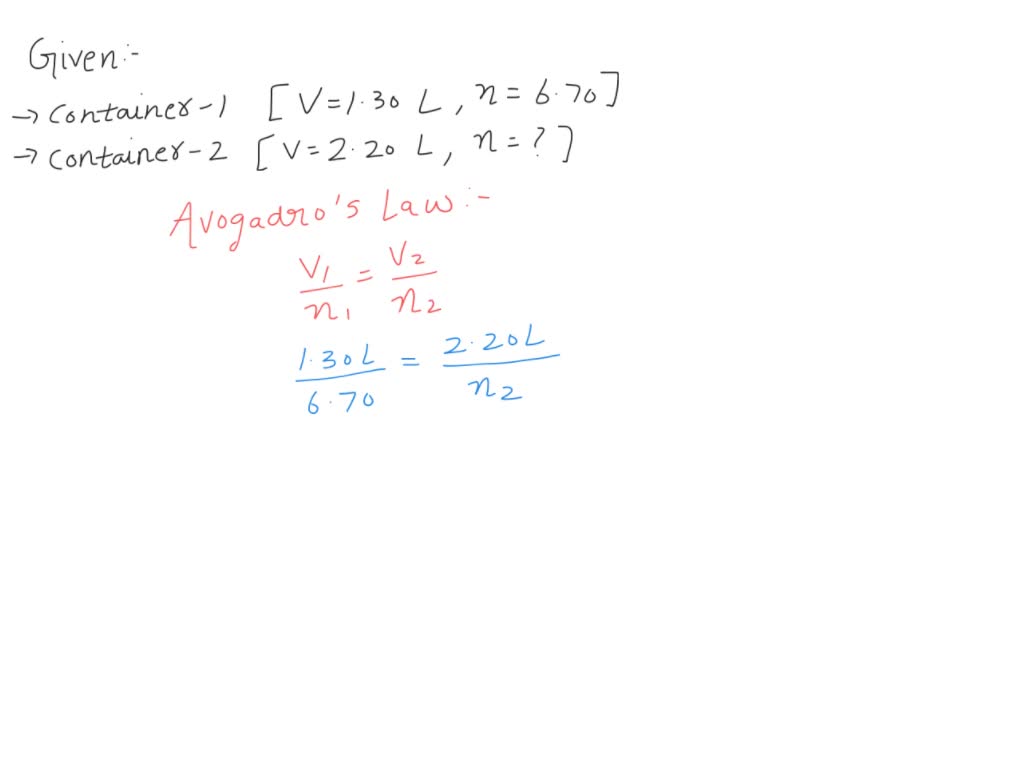 Given:-
→ Container-1 [V=1.30 L, n=6.70]
→ Container-2 [V=2.20 L, n=?]
Avogadro's Law:-
V1/n1 = V2/n2
1.30L/6.70 = 2.20L/n2